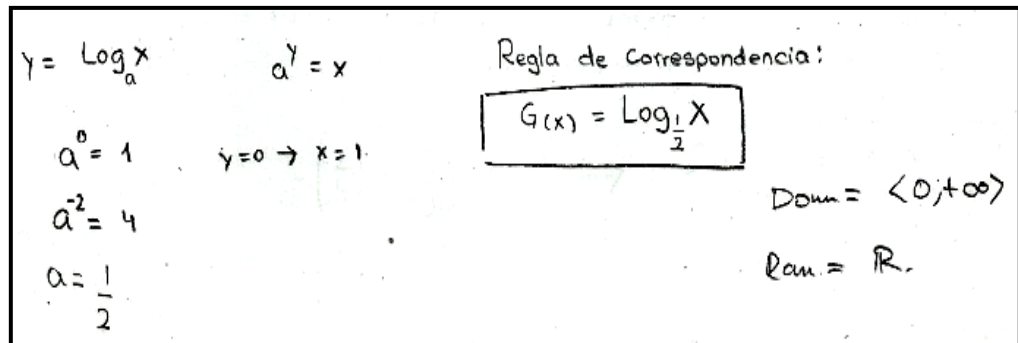 y = Log_a x
a^y = x
a^0 = 1
y=0 → x=1.
a^-2 = 4
a = 1/2
Regla de Correspondencia:
G(x) = Log_1/2 X
Dom = <0;+∞>
Ran. = ℝ.